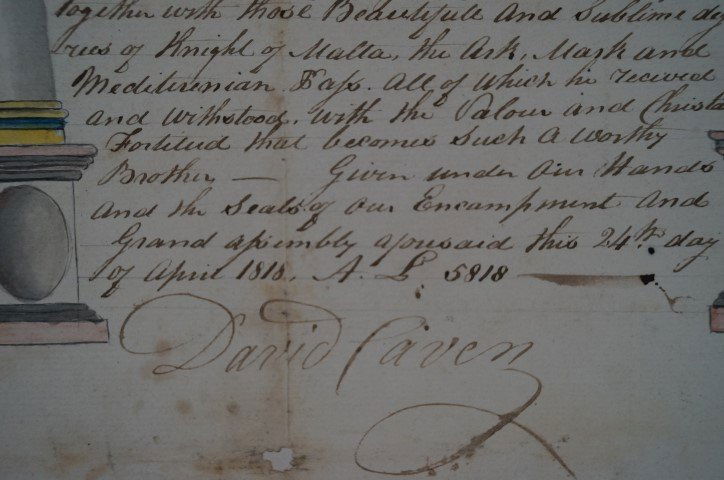 Together with those Beautifull And Sublime deg
rees of Knight of Malta, the Ark, Mark and
Mediterenian Pass. All of which he received
and withstood, with the Valour and Christa
Fortitud that becomes such a worthy
Brother — Given under Our Hands
And the Seals of Our Encampment and
Grand assembly aforesaid this 24th day
of April 1818, A. L 5818
David Caven